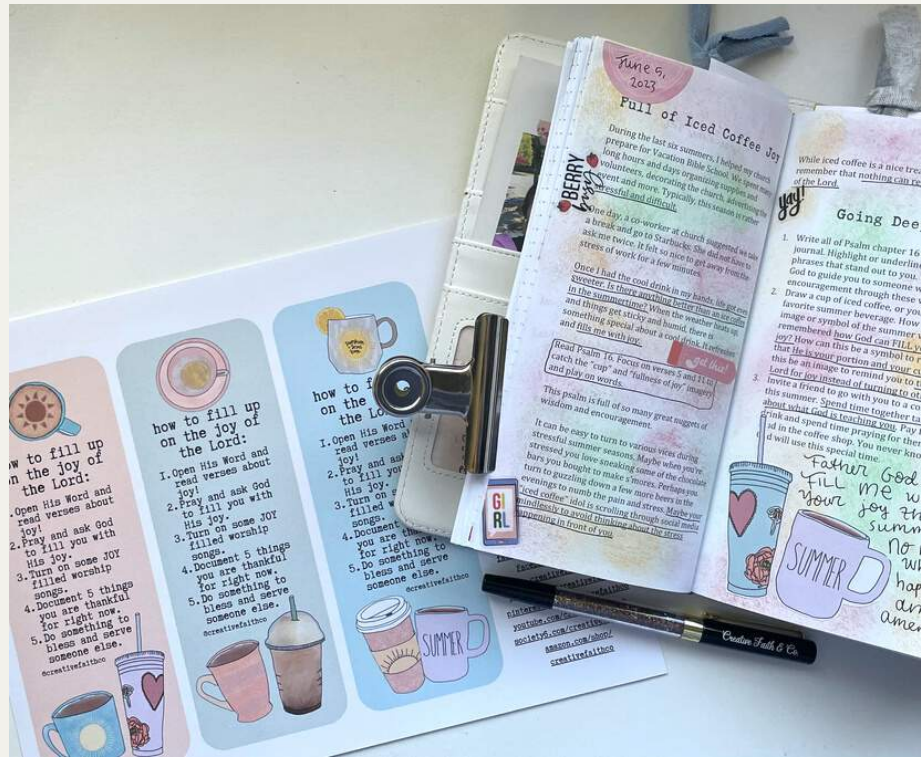 how to fill up
on the joy of
the Lord:
Open His Word and
read verses about
joy!
2.Pray and ask God
to fill you with
His joy.
3.Turn on some JOY
filled worship
songs.
4.Document 5 things
you are thankful
for right now.
5.Do something to
bless and serve
someone else.
@creativefaithco
how to fill up
on the joy of
the Lord:
1.Open His Word and
read verses about
joy!
2.Pray and ask God
to fill you with
His joy.
3.Turn on some JOY
filled worship
songs.
4.Document 5 things
you are thankful
for right now.
5.Do something to
bless and serve
someone else.
@creativefaithco
how to
on the
the Lo
1.Open His Word
read verses a
joy!
2.Pray and ask
to fill you
His joy.
3.Turn on
filled w
songs.
4.Document
you are than
for right now.
5.Do something to
bless and serve
someone else.
@creativefaithco
SUMMER
youtube.com/
society6.com/
amazon.com/shop/
creativefaithco
June 5,
2023
Full of Iced Coffee Joy
During the last six summers, I helped my church
prepare for Vacation Bible School. We spent many
long hours and days organizing supplies and
volunteers, decorating the church, advertising the
event and more. Typically, this season is rather
stressful and difficult.
BERRY
One day, a co-worker at church suggested we take
a break and go to Starbucks. She did not have to
ask me twice. It felt so nice to get away from the
stress of work for a few minutes.
Once I had the cool drink in my hands, life got even
sweeter. Is there anything better than an ice coffee
in the summertime? When the weather heats up
and things get sticky and humid, there is
something special about a cool drink. It refreshes
and fills me with joy.
Read Psalm 16. Focus on verses 5 and 11 to
catch the "cup" and "fullness of joy" imagery
and play on words.
get this!
This psalm is full of so many great nuggets of
wisdom and encouragement.
It can be easy to turn to various vices during
stressful summer seasons. Maybe when you're
stressed you love sneaking some of the chocolate
bars you bought to make s'mores. Perhaps you
turn to guzzling down a few more beers in the
evenings to numb the pain and stress. Maybe your
"iced coffee" idol is scrolling through social media
mindlessly to avoid thinking about the stress
happening in front of you.
GI
RL
While iced coffee is a nice trea
remember that nothing can re
of the Lord.
yay!
Going Dee
1. Write all of Psalm chapter 16
journal. Highlight or underlin
phrases that stand out to you.
God to guide you to someone w
encouragement through these v
2. Draw a cup of iced coffee, or you
favorite summer beverage. How
image or symbol of the summer
remembered how God can FILL y
joy? How can this be a symbol to r
that He is your portion and your cu
this be an image to remind you to
Lord for joy instead of turning to o
3. Invite a friend to go with you to a c
this summer. Spend time together
about what God is teaching you. Pay
drink and spend time praying for th
ad in the coffee shop. You never kno
d will use this special time.
Father God
fill me w
your joy th
summ
No
wh
ha
an
amen
SUMMER
Creative Faith & Co.